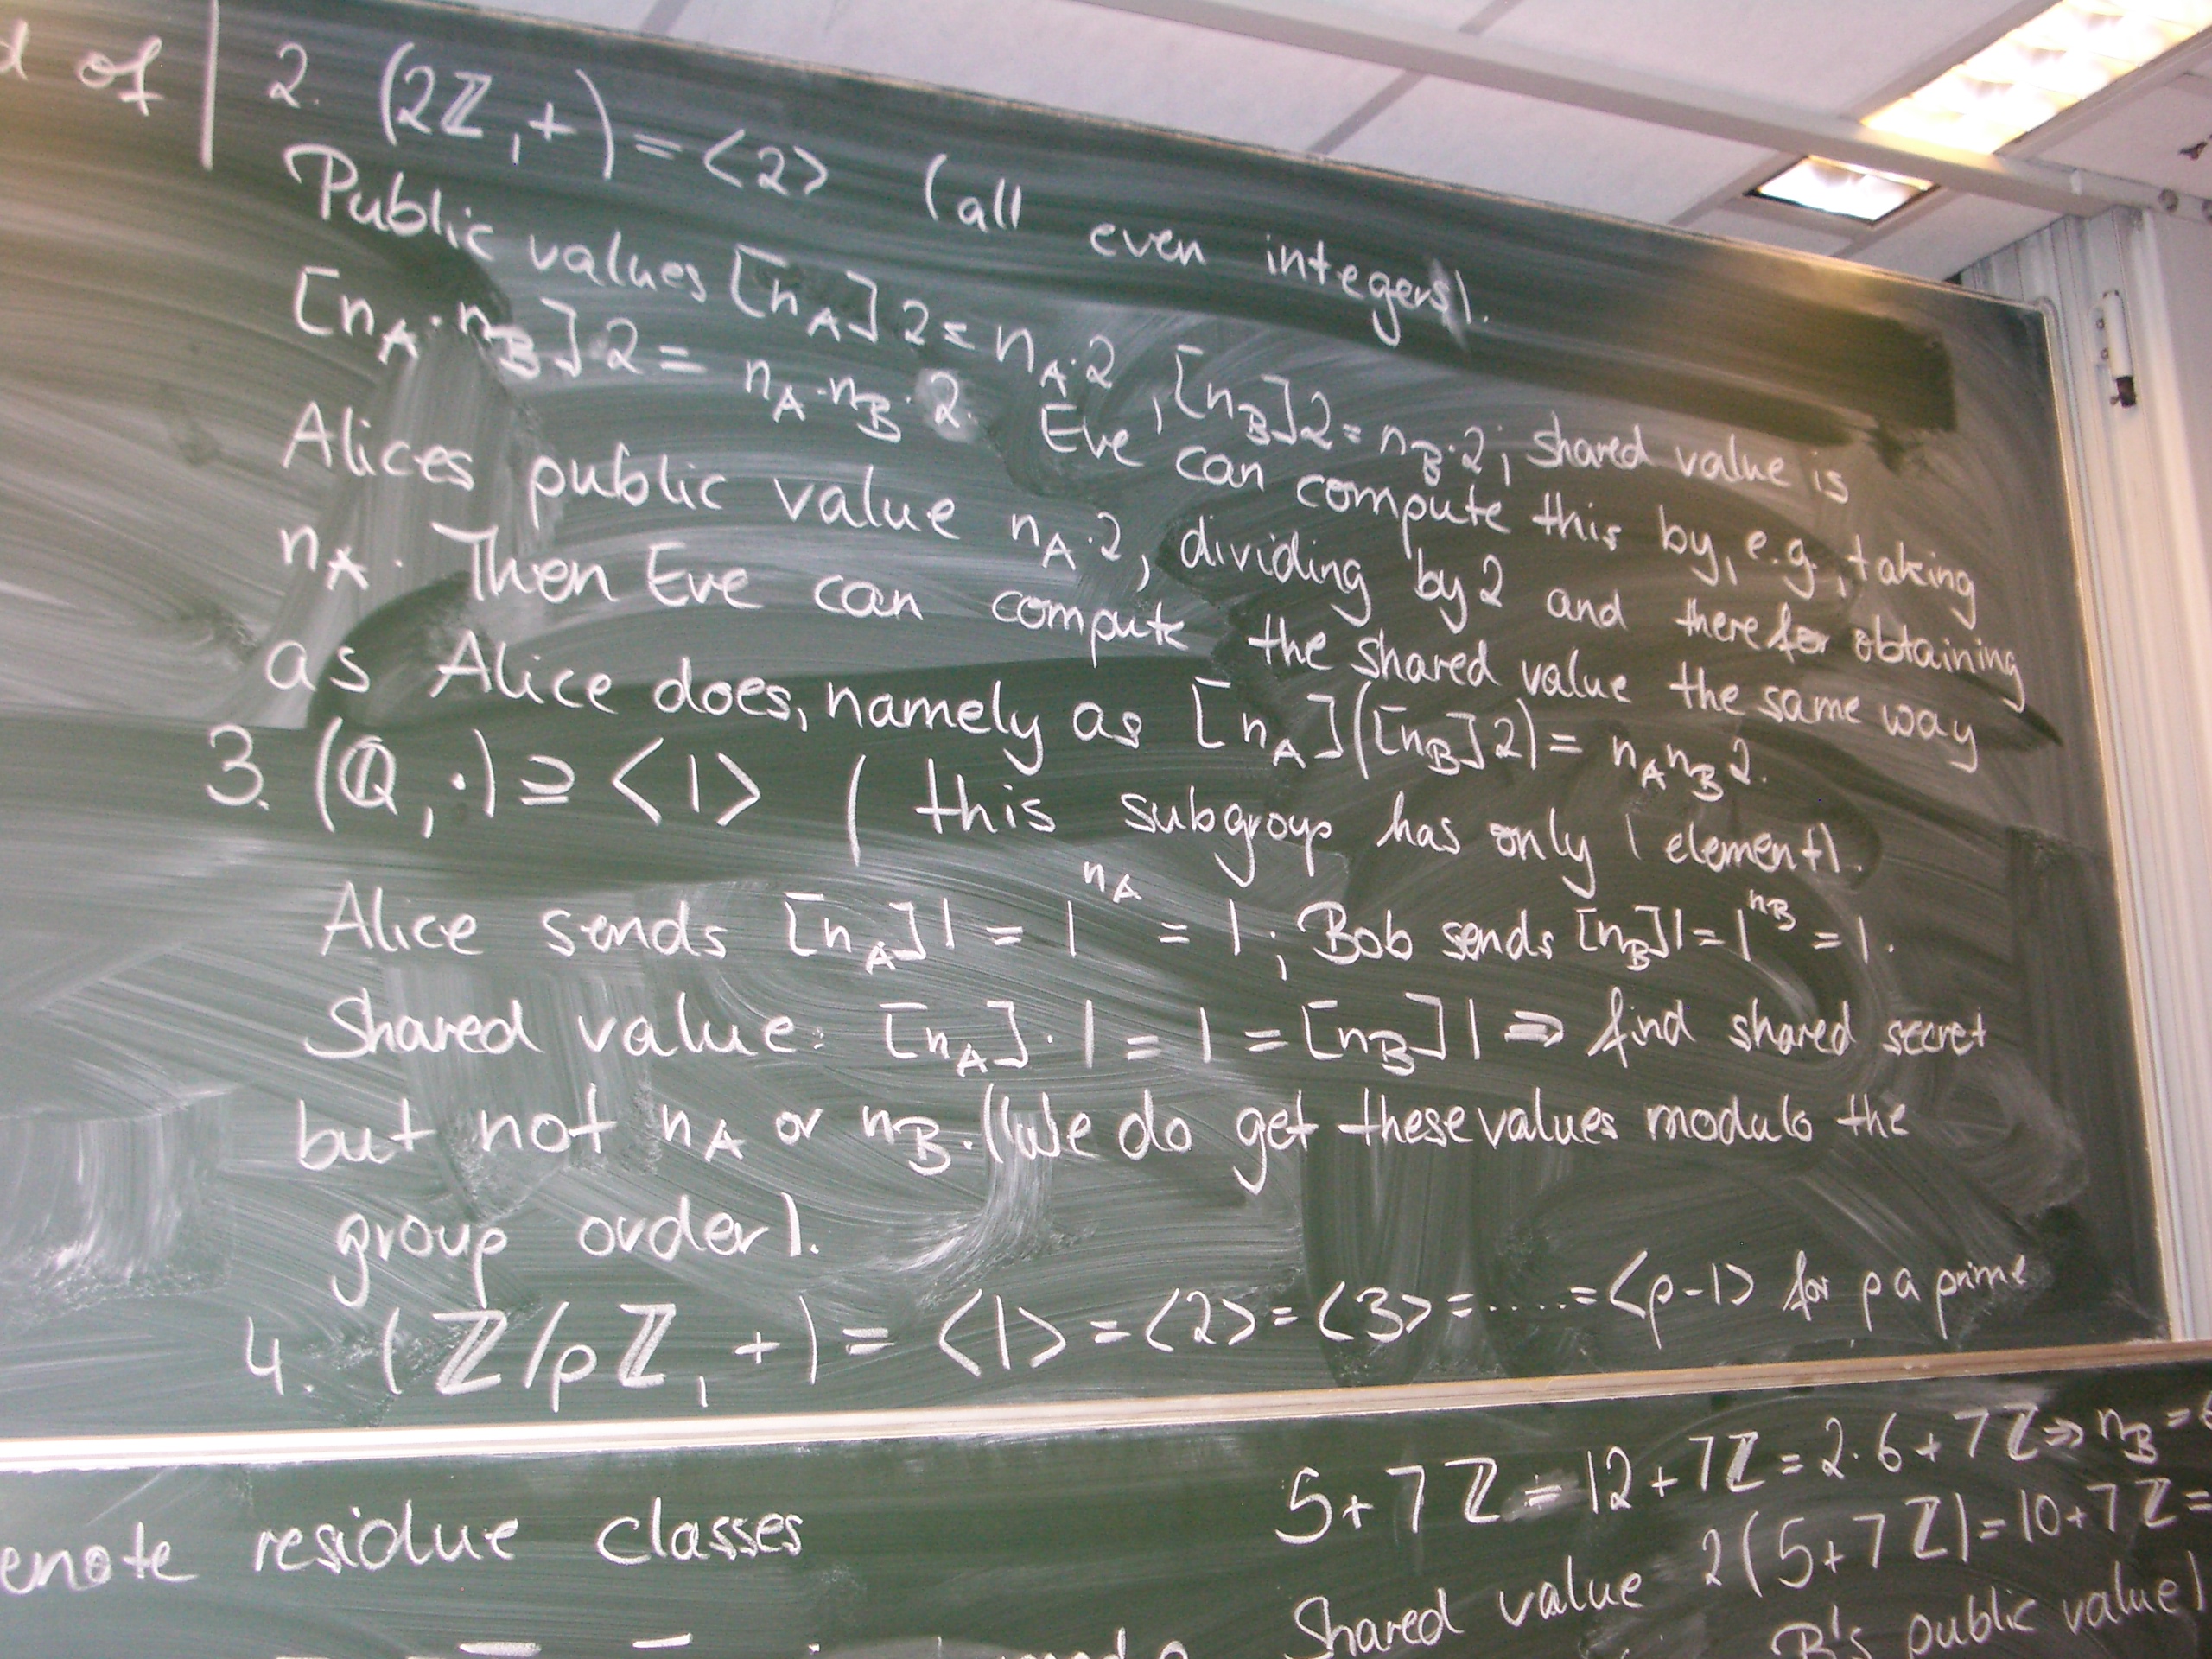 d of
2. (2ℤ, +) = <2> (all even integers).
Public values [n_A] 2 = n_A·2, [n_B] 2 = n_B·2; shared value is
[n_A·n_B] 2 = n_A·n_B·2. Eve can compute this by, e.g., taking
Alices public value n_A·2, dividing by 2 and therefor obtaining
n_A. Then Eve can compute the shared value the same way
as Alice does, namely as [n_A]([n_B] 2) = n_A n_B 2.
3. (ℚ, ·) ⊇ <1> (this subgroup has only 1 element).
Alice sends [n_A] 1 = 1^{n_A} = 1; Bob sends [n_B] 1 = 1^{n_B} = 1.
Shared value: [n_A]·1 = 1 = [n_B] 1 ⇒ find shared secret
but not n_A or n_B. (We do get these values modulo the
group order).
4. (ℤ/pℤ, +) = <1> = <2> = <3> = ..... = <p-1> for p a prime
enote residue classes
5+7ℤ = 12+7ℤ = 2·6+7ℤ ⇒ n_B =
Shared value 2(5+7ℤ) = 10+7ℤ =
B's public value)